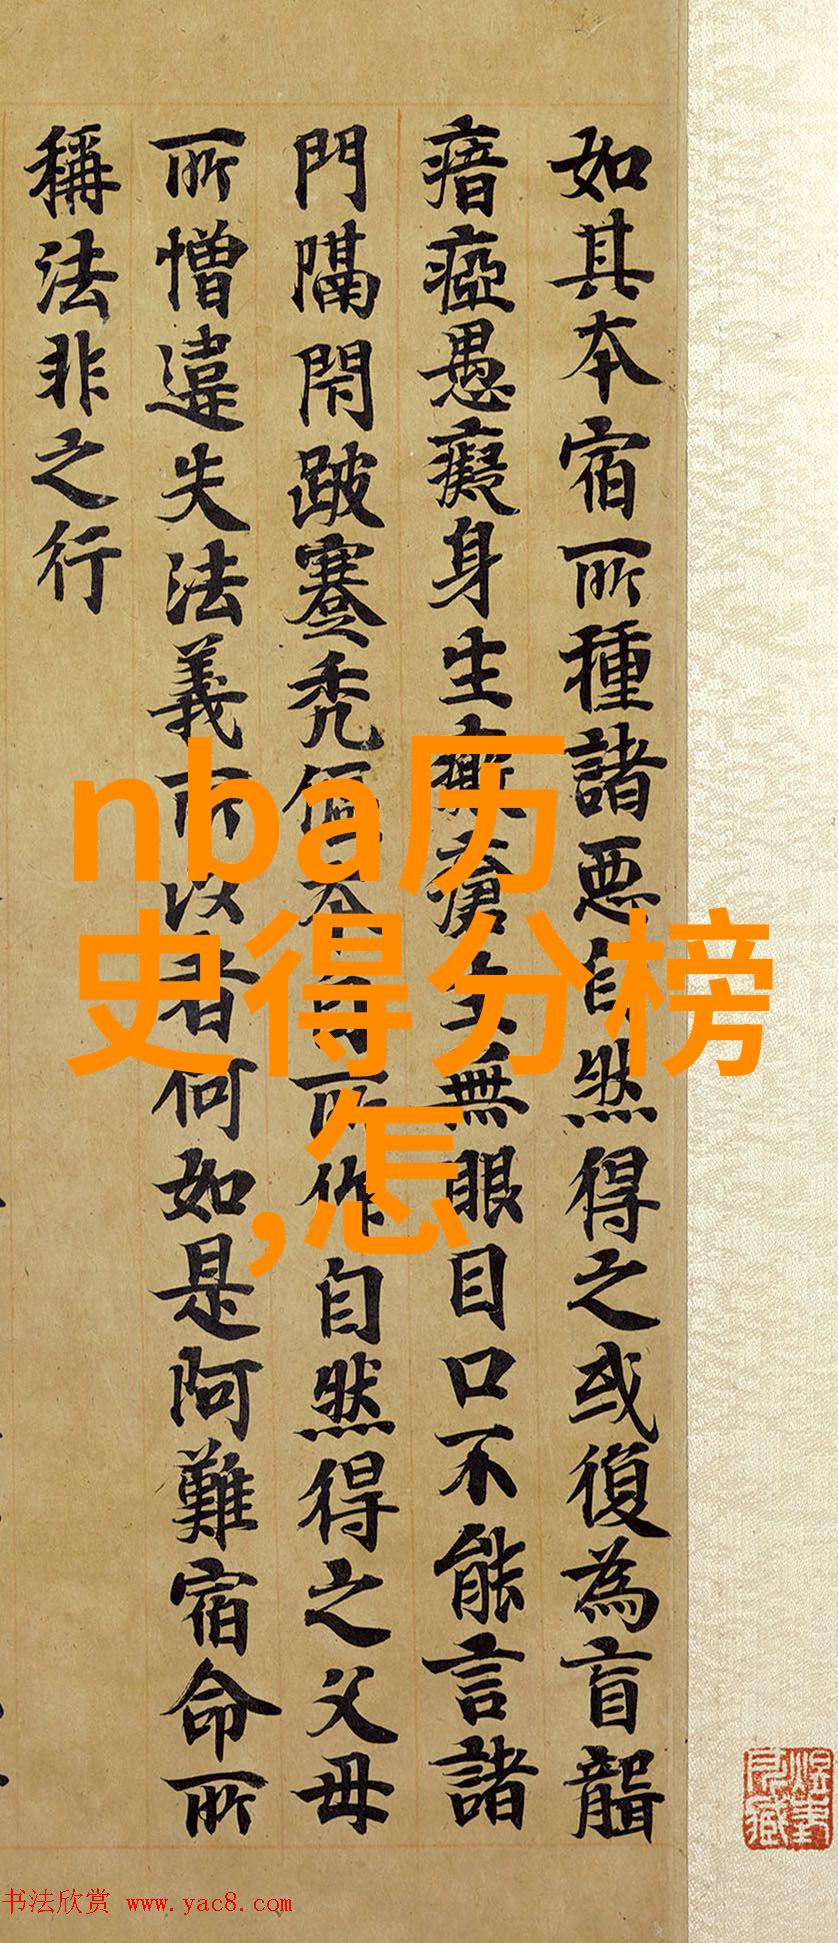 如其本宿所種諸惡自然得之或復為盲聾
瘖瘂愚癡身生癩瘡又無眼目口不能言諸
門隔閇跛蹇秃
所作自然得之父母
所憎違失法義所以者何如是阿難宿命所
稱法非之行
nba历
史得分榜
,怎
书法欣赏 www.yac8.com